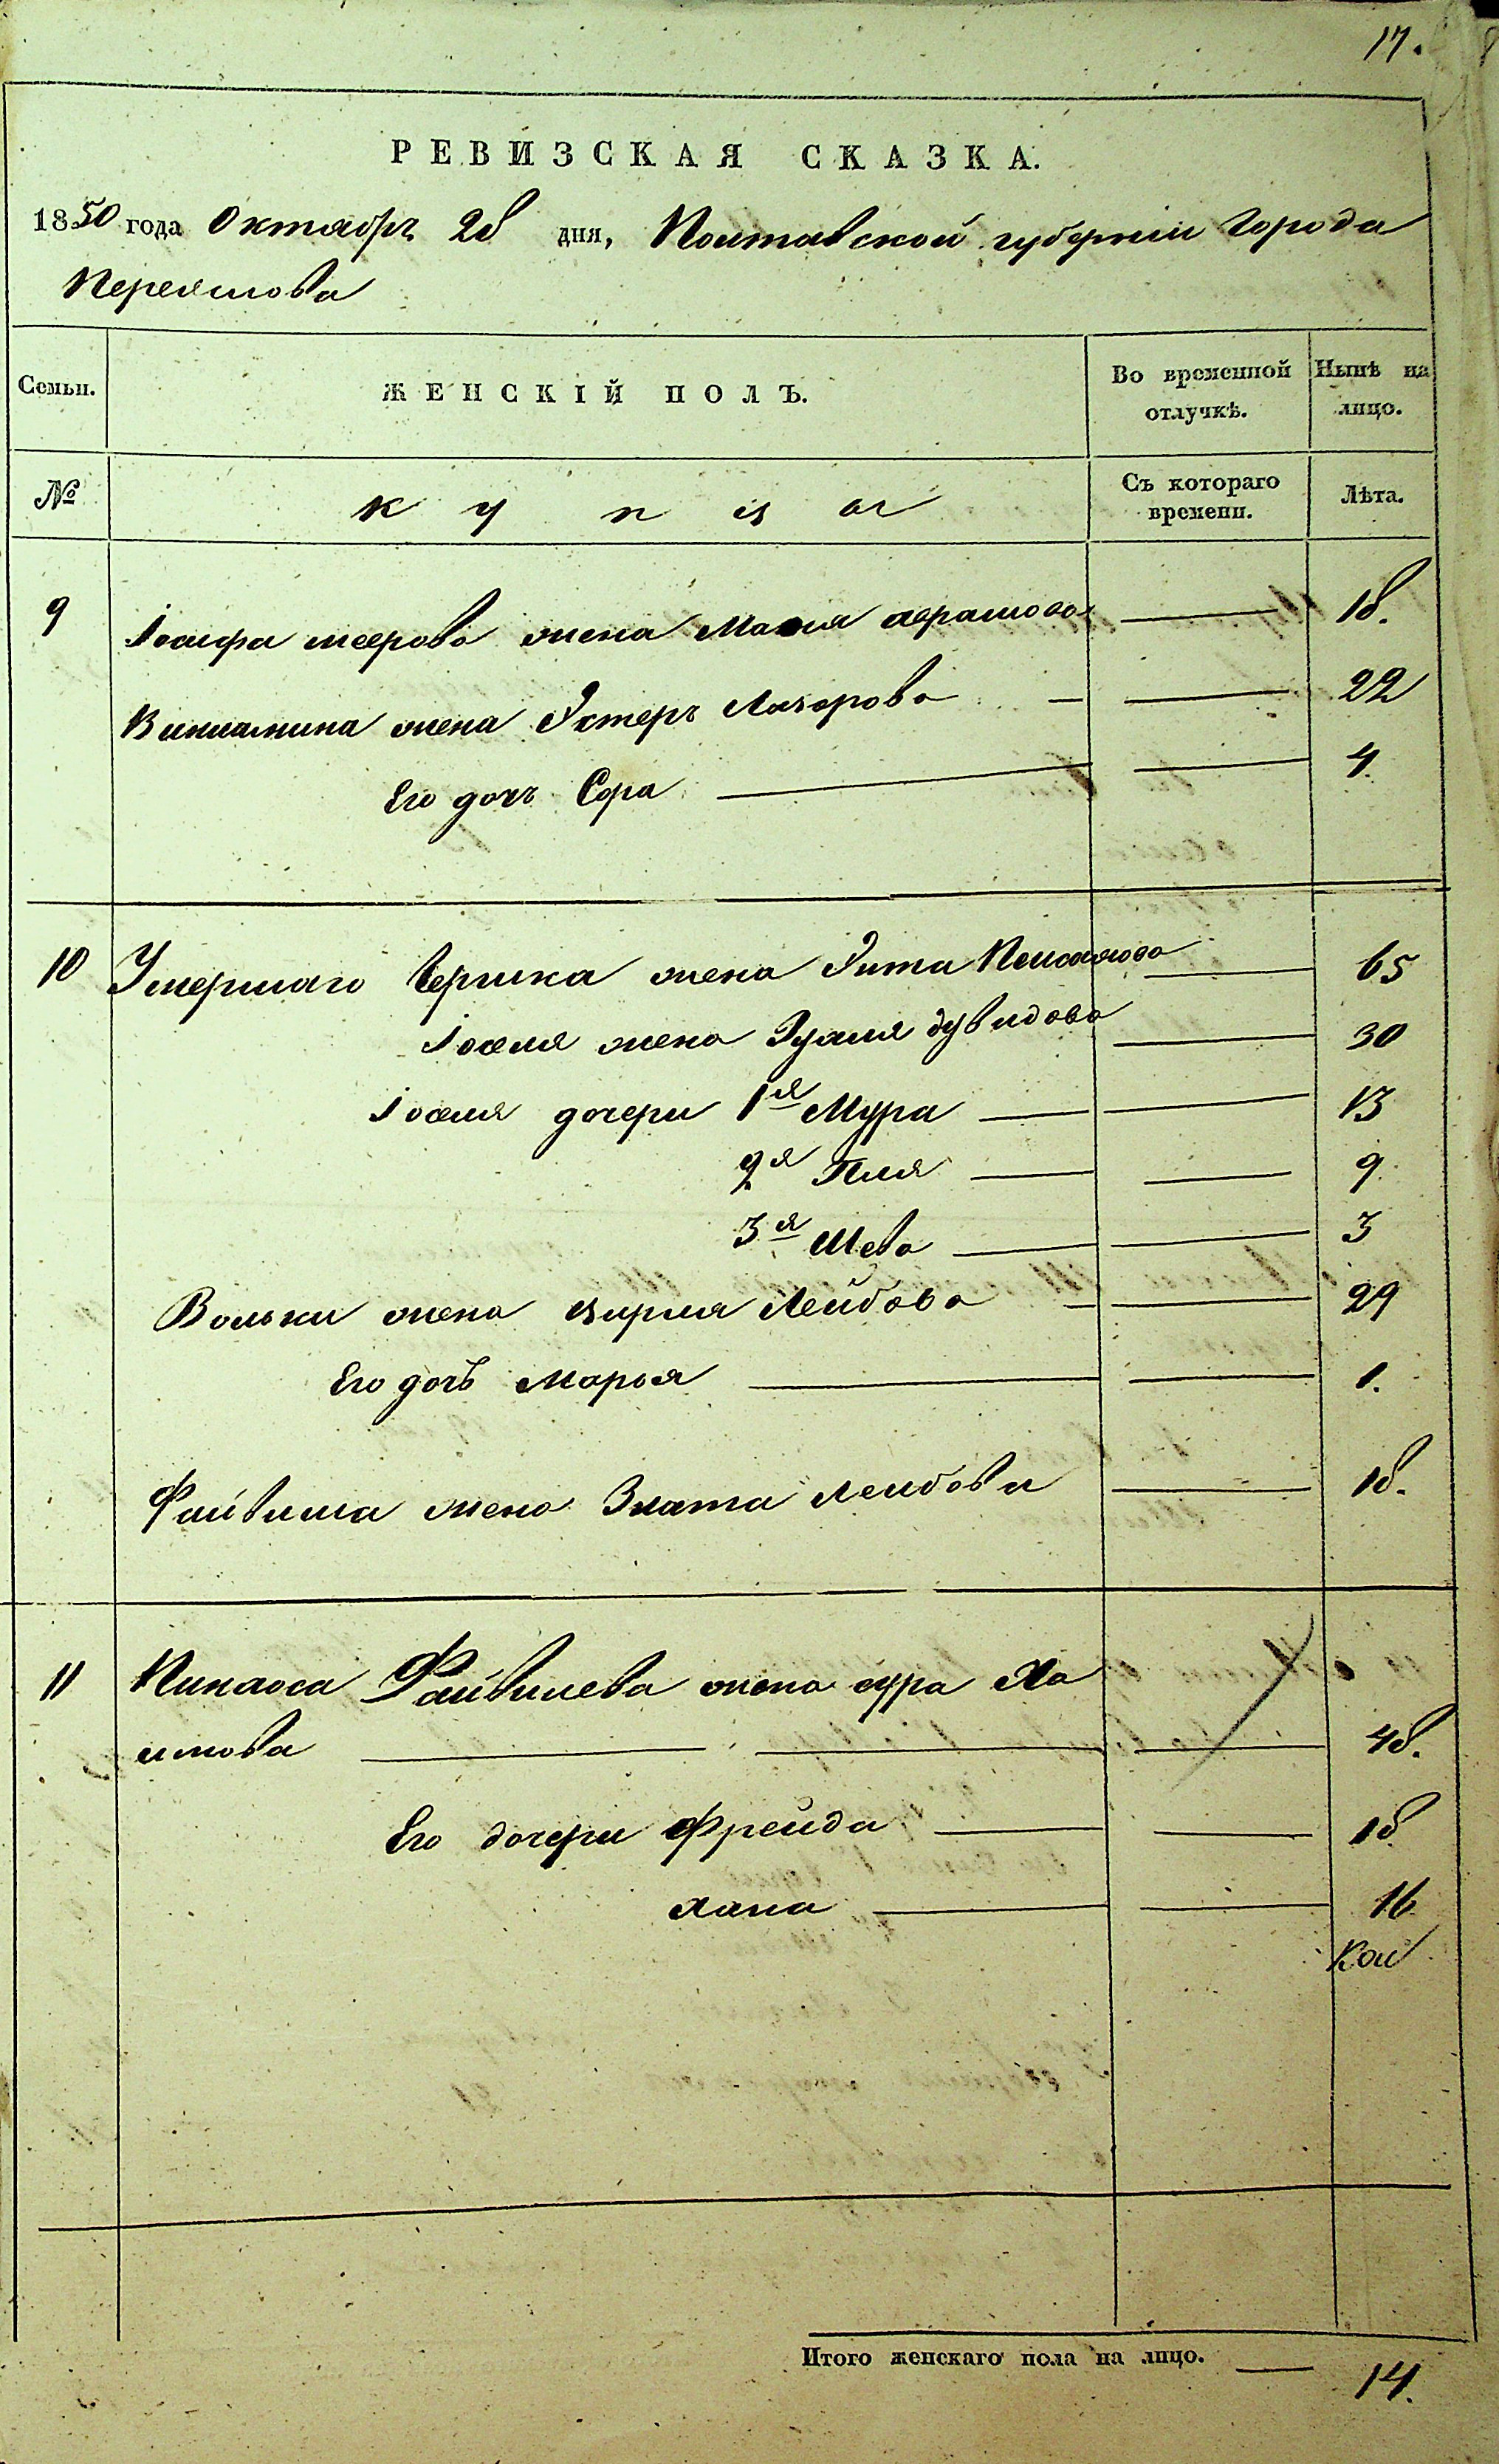 17.
РЕВИЗСКАЯ СКАЗКА.
1850 года Октября 28 дня, Полтавской губернии Города
Переяслова
Семьи.
ЖЕНСКІЙ ПОЛЪ.
Во временной отлучкѣ.
Нынѣ на лицо.
№
Съ котораго времени.
Лѣта.
9 Іосифа меерова жена Абрамова 18.
Вениамина жена Эстеръ Лазорова 22
Его дочь Сора 4.
10 Умершаго Бершка жена 65
Іоселя жена дувидова 30
Іоселя дочери 1я Мура 13
2я 9.
3я Шева 3
Вольки жена цирля Лейбова 29
Его дочь Марья 1.
Файвиша жена Злата лейбова 18.
11 Пинхоса Файвишева жена сура Ха
имова 48.
Его дочери Фрейда 18
хана 16
Итого женскаго пола на лицо. 14.